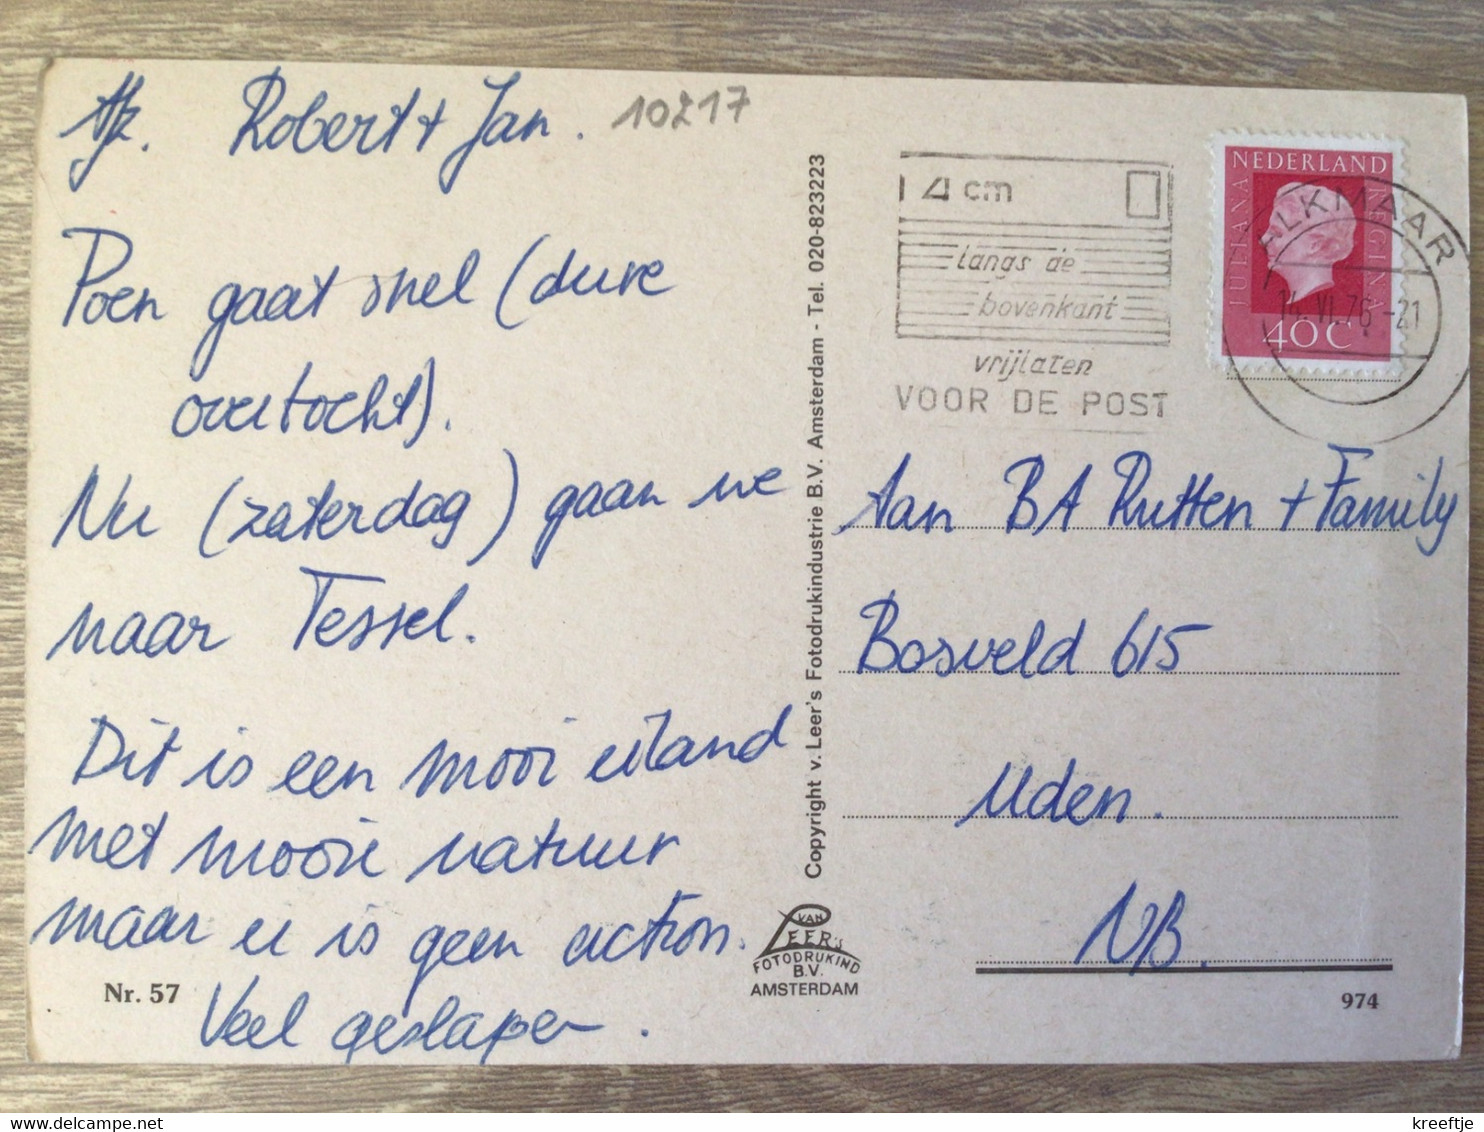 Afz. Robert + Jan. 10217
Poen gaat snel (dure
overtocht).
Nu (zaterdag) gaan we
naar Tessel.
Dit is een mooi eiland
met mooie natuur
maar er is geen action.
Veel geslapen.
Nr. 57
Copyright v. Leer's Fotodrukindustrie B.V. Amsterdam - Tel. 020-823223
VAN
LEER'S
FOTODRUKIND
B.V.
AMSTERDAM
4 cm
langs de
bovenkant
vrijlaten
VOOR DE POST
NEDERLAND
JULIANA
REGINA
40 C
ALKMAAR
14.VI.76-21
Aan BA Rutten + Family
Bosveld 615
Uden.
NB.
974
kreeftje